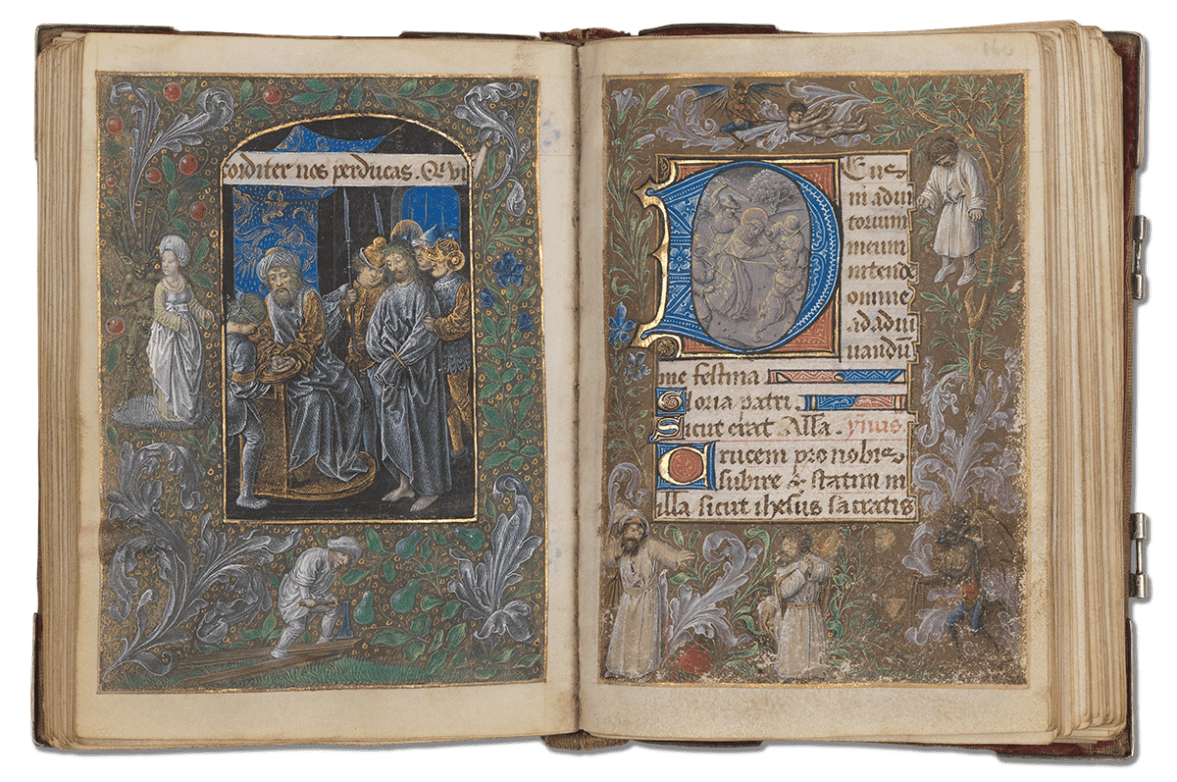 corditer nos perducas. Qui vi
160
DEus
in adiu
torium
meum
intende
omine
ad adiu
uandū
me festina
Gloria patri.
Sicut erat Alla. ymus
Crucem pro nobis
subire & statim in
illa sicut ihesus sacratis